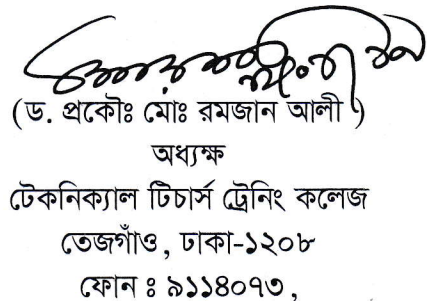 (ড. প্রকৌঃ মোঃ রমজান আলী )
অধ্যক্ষ
টেকনিক্যাল টিচার্স ট্রেনিং কলেজ
তেজগাঁও, ঢাকা-১২০৮
ফোন ঃ ৯১১৪০৭৩,